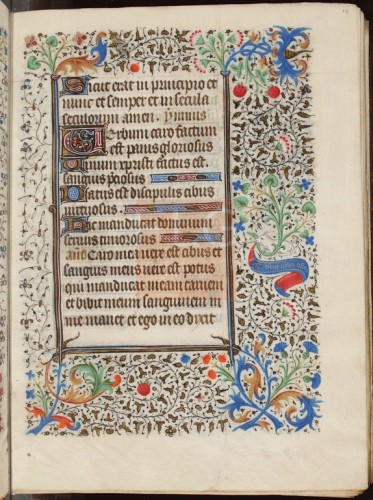 Sicut erat in principio et
nunc et semper et in secula
seculorum amen. Ymnus
Verbum caro factum
est panis gloriosus
Vinum xpristi factus est
sanguis preciosus
Datus est discipulis cibus
virtuosus.
Hic manducat dominum
servus timorosus
añ Caro mea vere est cibus et
sanguis meus vere est potus
qui manducat meam carnem
et bibit meum sanguinem in
me manet et ego in eo dixit